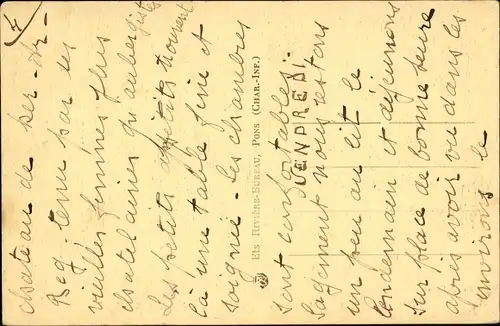 7
chateau de Ker-Ar-
Beg. tenu par des
vieilles femmes plus
chatelaines qu'aubergistes
Les petits appétits trouvent
là une table fine et
soignée - les chambres
Ets RIVIÈRE-BUREAU, PONS (CHAR.-INF.)
sont confortables.
VENDREDI.
sagement nous restons
un peu au lit le
lendemain et déjeunons
sur place de bonne heure
après avoir vu dans les
environs le